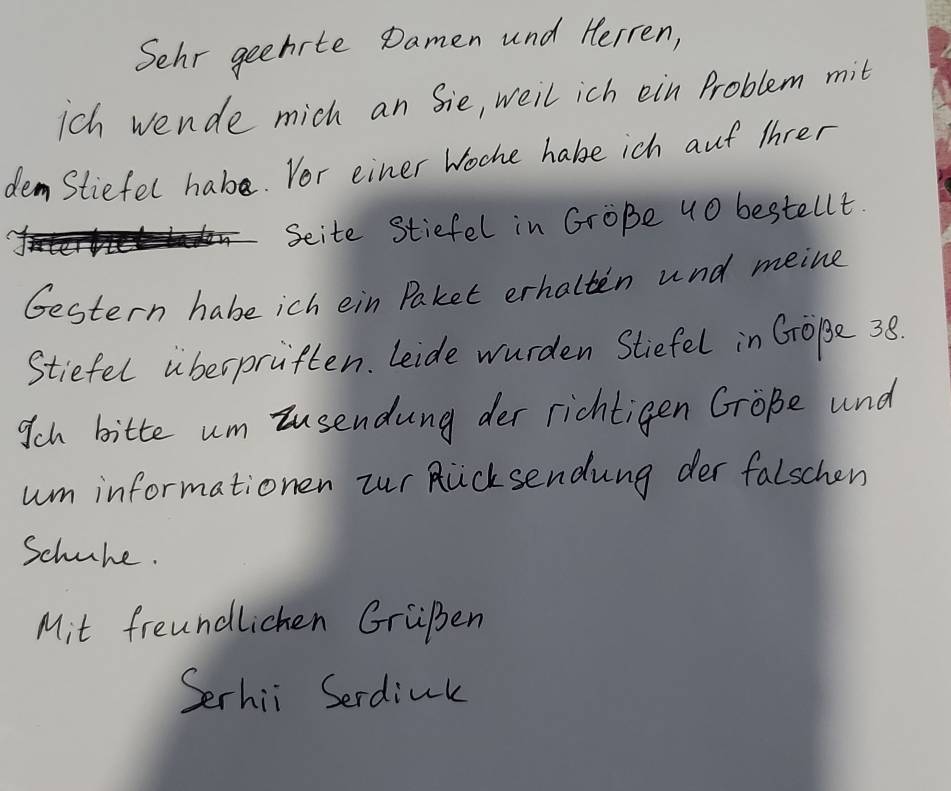 Sehr geehrte Damen und Herren,
ich wende mich an Sie, weil ich ein Problem mit
dem Stiefel habe. Vor einer Woche habe ich auf Ihrer
Seite Stiefel in Größe 40 bestellt.
Gestern habe ich ein Paket erhalten und meine
Stiefel überprüften. Leide wurden Stiefel in Größe 38.
Ich bitte um Zusendung der richtigen Größe und
um informationen zur Rücksendung der falschen
Schuhe.
Mit freundlichen Grüßen
Serhii Serdiuk